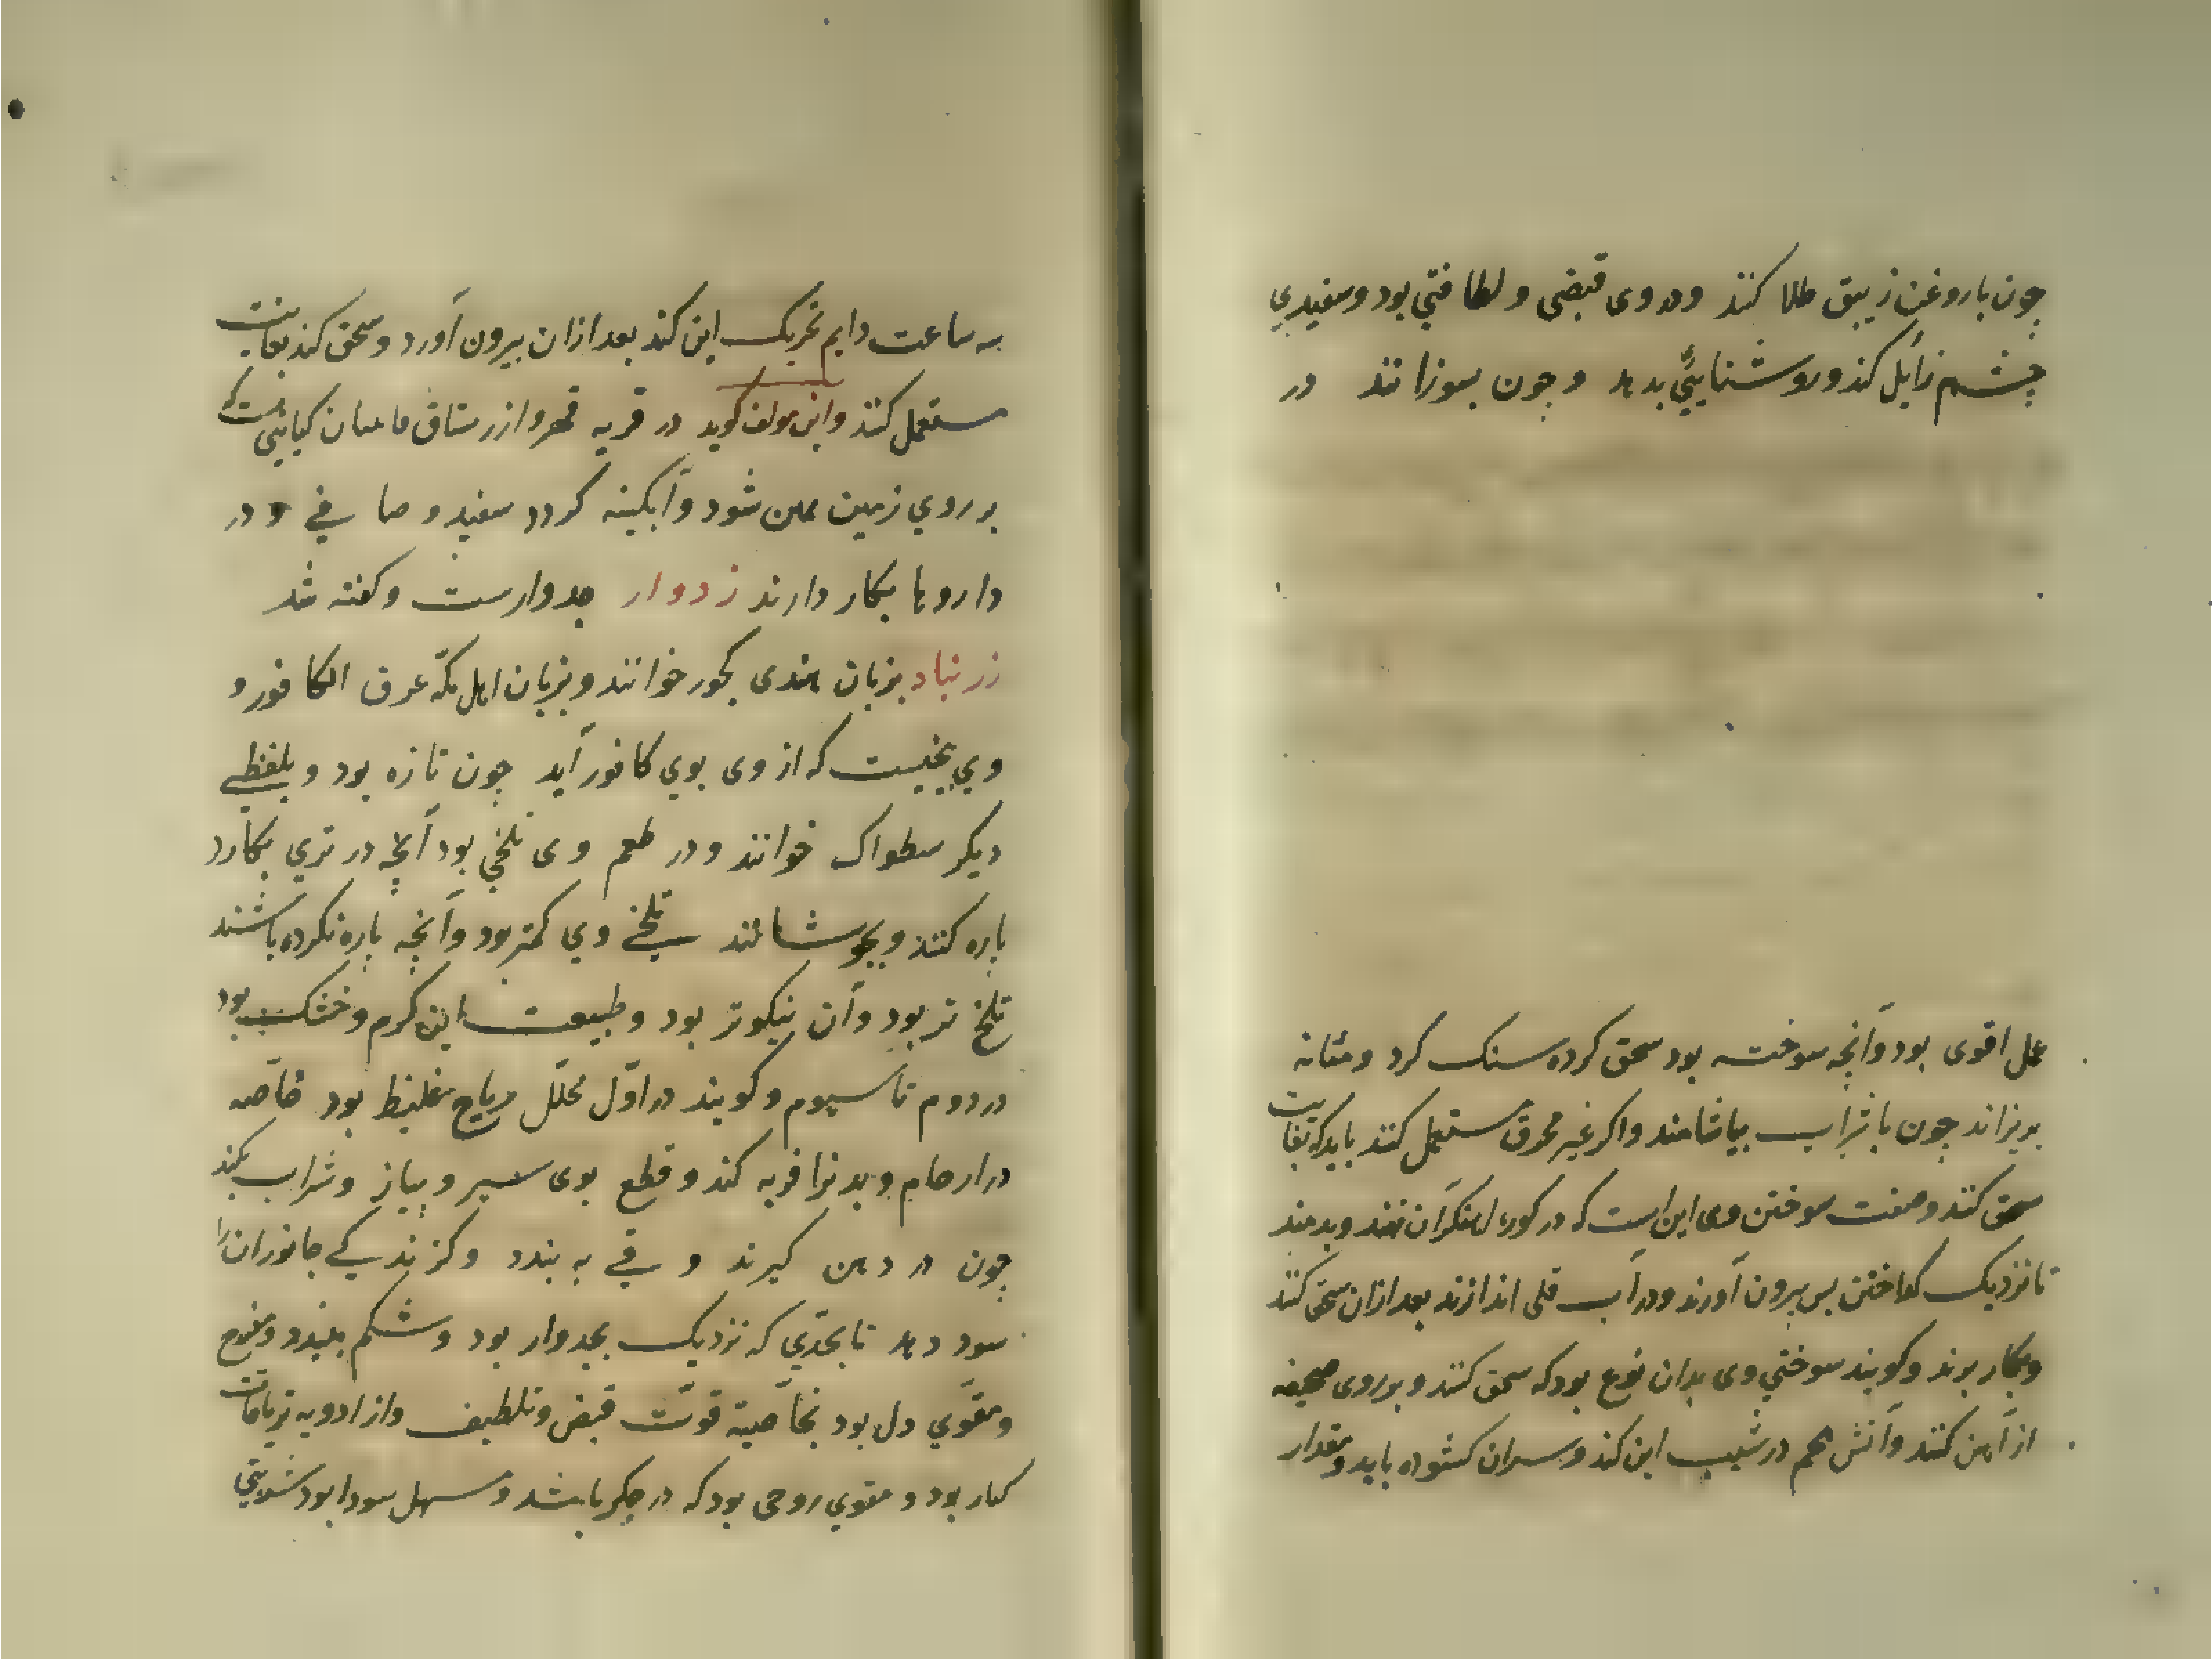 چون با روغن زیبق طلا کنند و در وی قبضی و لطافتی بود و سفیدی
چشم زایل کند و روشنایی بدهد و چون بسوزانند در
عمل اقوی بود و آنچه سوخته بود سحق کرده سنک کرد و مثانه
بریزاند چون با شراب بیاشامند و اکر غیر محرق مستعمل کنند باید که بغایت
سحق کنند و صفت سوختن وی این است که در کوره اهنکران نهند و بدمند
تا نزدیک کداختن بس بیرون آورند و در آب قلی اندازند بعد ازان سحق کنند
و بکار برند و کویند سوختی وی بدان نوع بود که سحق کنند و بر روی صحیفه
از آهن کنند و آتش هم در شیب این کند و سران کشوده باید و مقدار
سه ساعت دایم تحریک این کند بعد ازان بیرون آورد و سحق کند بغایت
مستعمل کنند و این مولف کوید در قریه قهرو از رستاق کیاهی است که
بر روی زمین شود و آبکینه کردد سفید و صافی و در
داروها بکار دارند زدوار جدوارست و کفته شد
زرنباد بزبان هندی کجور خوانند و بزبان اهل مکه عرق الکافور و
وی بیخیست که از وی بوی کافور آید چون تازه بود و بلفظی
دیکر سطواک خوانند و در طعم وی تلخی بود آنچه در تری بکارد
باره کنند و بجوشانند تلخی وی کمتر بود و آنچه باره نکرده باشند
تلخ تر بود و آن نیکوتر بود و طبیعت این کرم و خشک بود
در دوم تا سیوم و کویند در اول محلّل ریاح غلیظ بود خاصّه
در ارحام و بدنرا فربه کند و قطع بوی سیر و بیاز و شراب بکند
چون در دهن کیرند و قی به بندد و کزندکی جانوران را
سود دهد تا بحدّی که نزدیک بجدوار بود و شکم ببندد و مفرح
و مقوّی دل بود بخاصّیة قوّت قبض و تلطیف و از ادویه تریاقات
کبار بود و مقوی روحی بود که در جکر باشد و مسهل سودا بود شربتی